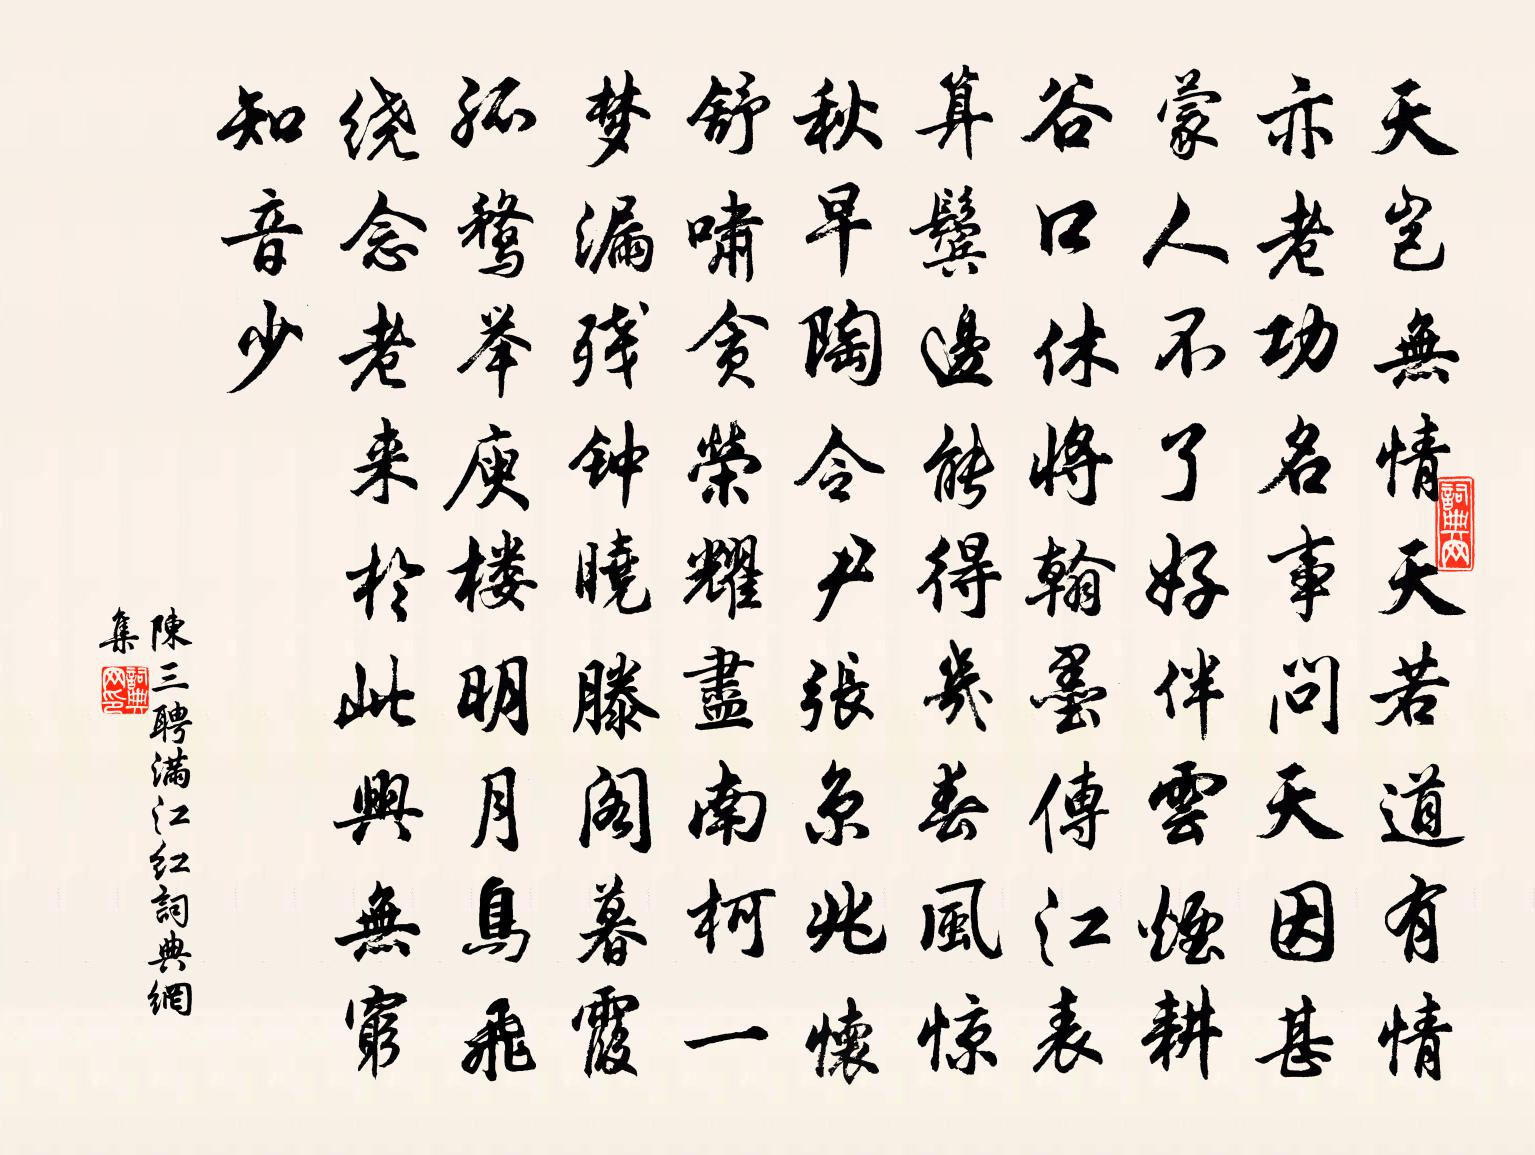 天岂無情天若道有情
亦老功名事问天因甚
蒙人不了好伴雲煙耕
谷口休将翰墨傳江表
算鬓邊能得幾春風惊
秋早陶令尹張京兆懷
舒啸贪榮耀盡南柯一
梦漏残钟曉滕阁暮霞
孤鹜举庾楼明月鳥飛
绕念老来於此興無窮
知音少
陳三聘满江红詞典網
集
詞典网
詞典网印